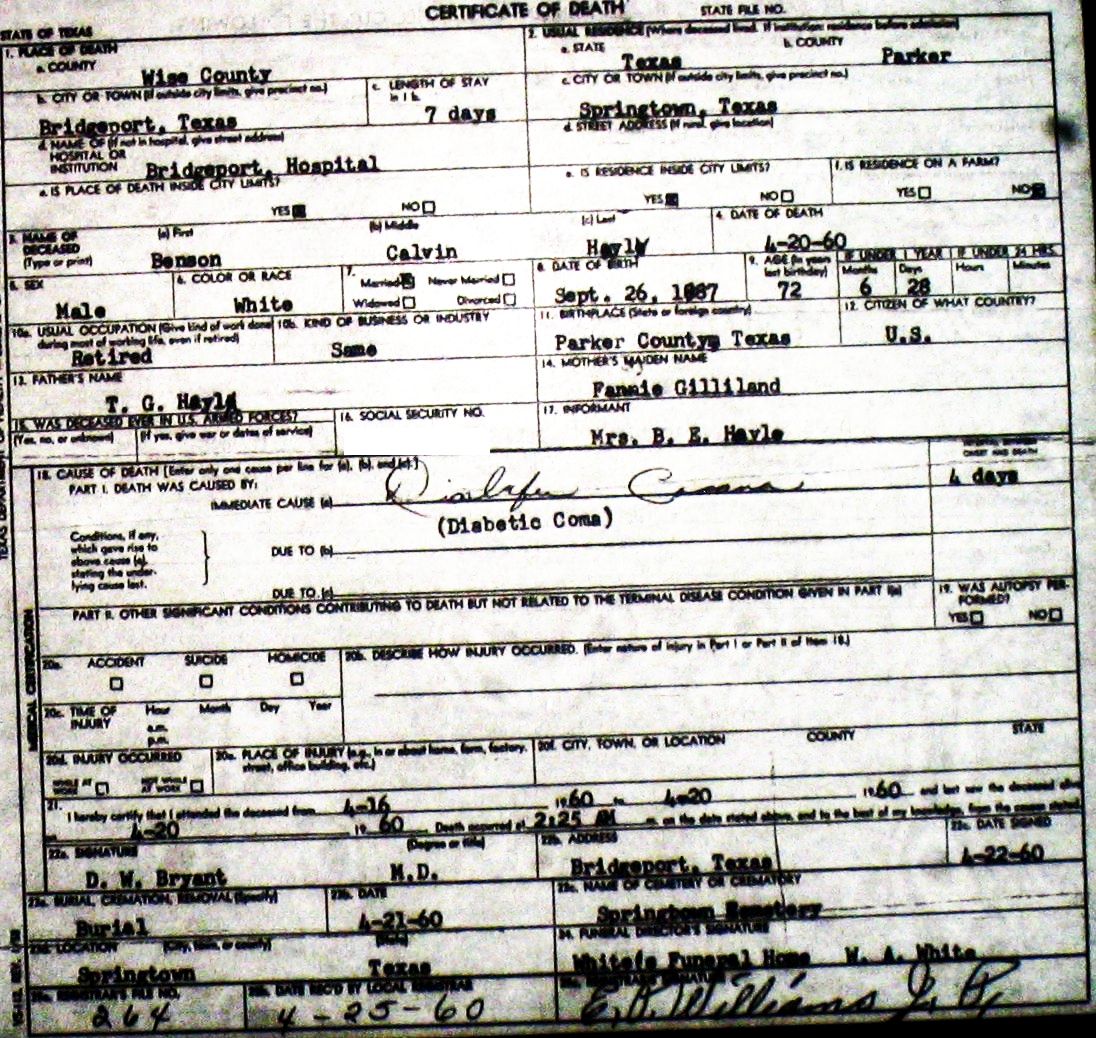 CERTIFICATE OF DEATH STATE FILE NO.
STATE OF TEXAS
1. PLACE OF DEATH
a. COUNTY
Wise County
2. USUAL RESIDENCE (Where deceased lived. If institution: residence before admission)
a. STATE
Texas
b. COUNTY
Parker
b. CITY OR TOWN (If outside city limits, give precinct no.)
Bridgeport, Texas
c. LENGTH OF STAY
in 1 b.
7 days
c. CITY OR TOWN (If outside city limits, give precinct no.)
Springtown, Texas
d. NAME OF (If not in hospital, give street address)
HOSPITAL OR
INSTITUTION
Bridgeport, Hospital
d. STREET ADDRESS (If rural, give location)
e. IS PLACE OF DEATH INSIDE CITY LIMITS?
YES NO
e. IS RESIDENCE INSIDE CITY LIMITS?
YES NO
f. IS RESIDENCE ON A FARM?
YES NO
3. NAME OF
DECEASED
(Type or print)
(a) First
Benson
(b) Middle
Calvin
(c) Last
4. DATE OF DEATH
4-20-60
5. SEX
Male
6. COLOR OR RACE
White
7.
Married Never Married
Widowed Divorced
8. DATE OF BIRTH
Sept. 26, 1887
9. AGE (In years
last birthday)
72
IF UNDER 1 YEAR
Months Days
6 28
IF UNDER 24 HRS.
Hours Minutes
10a. USUAL OCCUPATION (Give kind of work done
during most of working life, even if retired)
Retired
10b. KIND OF BUSINESS OR INDUSTRY
Same
11. BIRTHPLACE (State or foreign country)
Parker County, Texas
12. CITIZEN OF WHAT COUNTRY?
U.S.
13. FATHER'S NAME
T. G.
14. MOTHER'S MAIDEN NAME
Fannie Gilliland
15. WAS DECEASED EVER IN U.S. ARMED FORCES?
(Yes, no, or unknown) (If yes, give war or dates of service)
16. SOCIAL SECURITY NO.
17. INFORMANT
Mrs. B. E. Hayle
18. CAUSE OF DEATH [Enter only one cause per line for (a), (b), and (c).]
PART I. DEATH WAS CAUSED BY:
IMMEDIATE CAUSE (a)
(Diabetic Coma)
INTERVAL BETWEEN
ONSET AND DEATH
4 days
Conditions, if any,
which gave rise to
above cause (a),
stating the under-
lying cause last.
DUE TO (b)
DUE TO (c)
PART II. OTHER SIGNIFICANT CONDITIONS CONTRIBUTING TO DEATH BUT NOT RELATED TO THE TERMINAL DISEASE CONDITION GIVEN IN PART I(a)
19. WAS AUTOPSY PER-
FORMED?
YES NO
MEDICAL CERTIFICATION
20a. ACCIDENT SUICIDE HOMICIDE
20b. DESCRIBE HOW INJURY OCCURRED. (Enter nature of injury in Part I or Part II of Item 18.)
20c. TIME OF
INJURY
Hour Month Day Year
a.m.
p.m.
20d. INJURY OCCURRED
WHILE AT
WORK
NOT WHILE
AT WORK
20e. PLACE OF INJURY (e.g., in or about home, farm, factory,
street, office building, etc.)
20f. CITY, TOWN, OR LOCATION COUNTY STATE
21.
I hereby certify that I attended the deceased from 4-16 1960 to 4-20 1960 and last saw the deceased alive
4-20 1960 Death occurred at 2:25 AM m. on the date stated above, and to the best of my knowledge, from the causes stated.
22a. SIGNATURE (Degree or title)
D. W. Bryant M.D.
22b. ADDRESS
Bridgeport, Texas
22c. DATE SIGNED
4-22-60
23a. BURIAL, CREMATION, REMOVAL (Specify)
Burial
23b. DATE
4-21-60
23c. NAME OF CEMETERY OR CREMATORY
Springtown Cemetery
23d. LOCATION (City, town, or county) (State)
Springtown Texas
24. FUNERAL DIRECTOR'S SIGNATURE
White's Funeral Home W. A. White
25a. REGISTRAR'S FILE NO.
264
25b. DATE REC'D BY LOCAL REGISTRAR
4-25-60
25c. REGISTRAR'S SIGNATURE